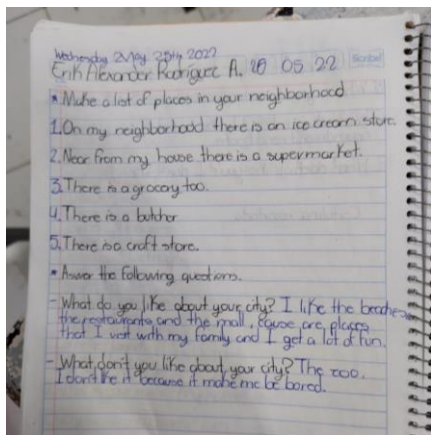 Wednesday 2May 25th, 2022
Erik Alexander Rodriguez A. 26 05 22 Scribe
* Make a list of places in your neighborhood
1. On my neighborhood there is an ice cream store.
2. Near from my house there is a supermarket.
3. There is a grocery too.
4. There is a butcher
5. There is a craft store.
* Aswer the following questions.
- What do you like about your city? I like the beaches
the restaurants and the mall, cause are places
that I visit with my family and I get a lot of fun.
- What don't you like about your city? The zoo.
I don't like it because it make me be bored.